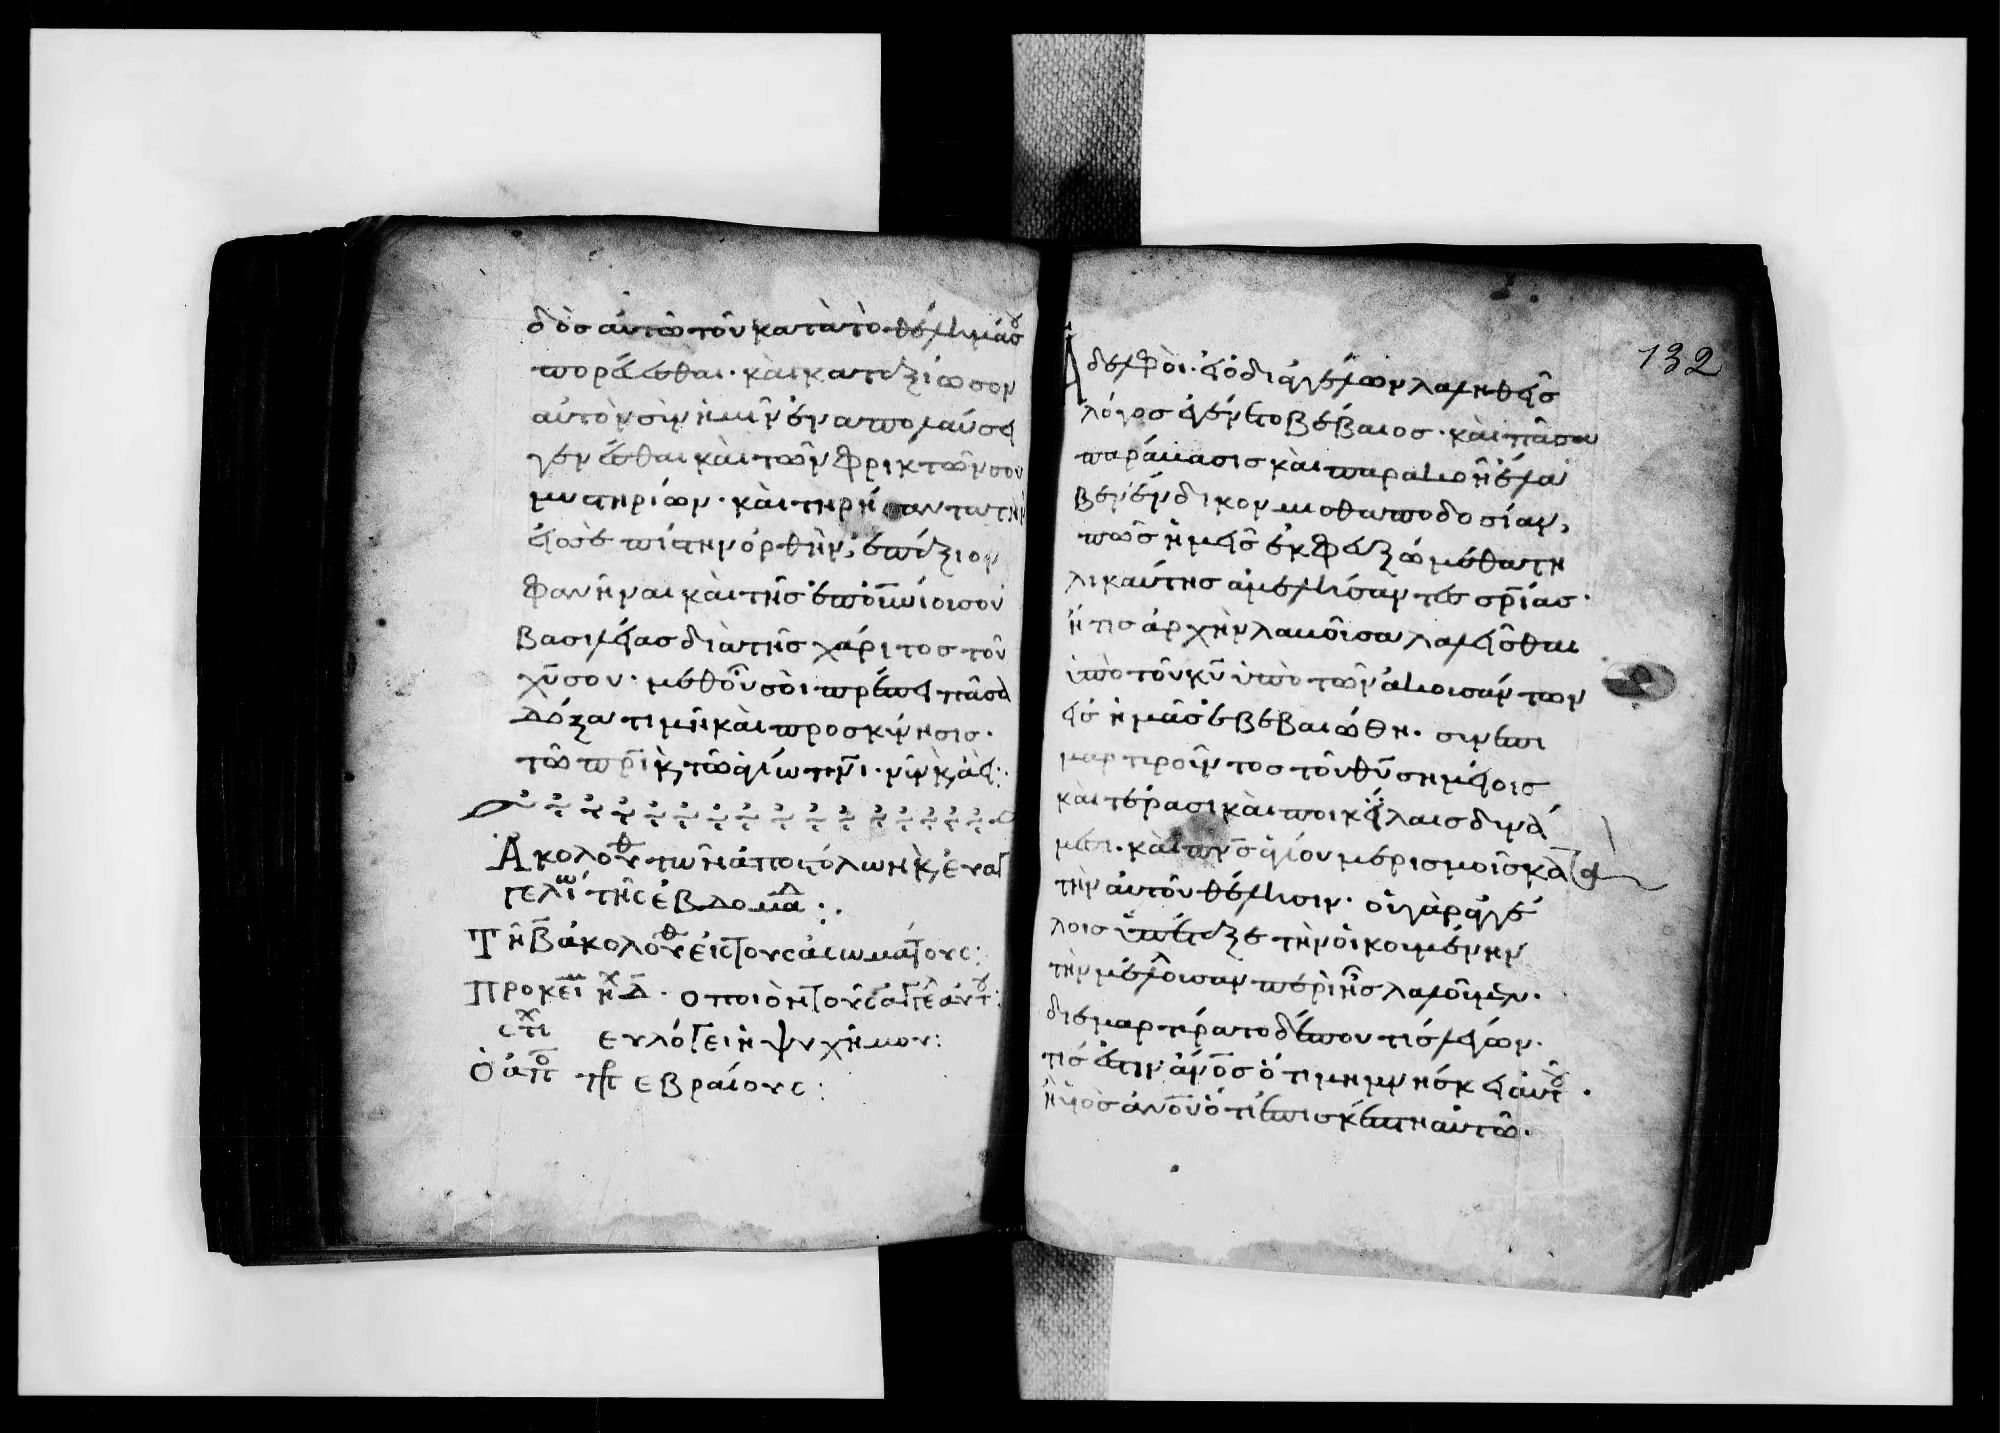 δὸσ αὐτῶ τὸν κατὰ τὸ θέλημά σου
πορεύεσθαι· καὶ καταξίωσον
αὐτὸν σὺν ἡμῖν ἐν απολαύσει
γενέσθαι καὶ τῶν φρικτῶν σου
μυστηρίων· καὶ τηρήσαντα τὴν
εἰσ σὲ πίστην ὀρθὴν, ἐπάξιον
φανῆναι καὶ τῆσ ἐποὐνίοισου
βασιλείασ διὰ τῆσ χάριτοσ τοῦ
χῦ σου· μεθ οὗ σοὶ πρέπει πᾶσα
δόξα τιμὴ καὶ προσκύνησισ·
τῶ πρὶ κ, τῶ ἁγίω πνι· νῦν κ, ἀεὶ:
Ἀκολουθ τῶν ἀποστόλων κ, ευαγ
γελίω τῆς ἐβδομάδ:.
Τῆ Β ἀκολουθ εἰς τους ἀσωμάτους:
Προκεῖμ ηχ Δ· ο ποιὸν τοὺς ἀγγέλ αὐτοῦ:
στιχ ευλόγει η ψυχή μου:
Ὁ ἀπο πρ εβραίους:
132
Ἀδελφοὶ· εἰ ὁ δι ἀγγέλων λαληθεὶσ
λόγοσ ἐγένετο βέβαιοσ· καὶ πᾶσα
παράβασισ καὶ παρακοὴ ἔλα
βεν ἔνδικον μισθαποδοσίαν,
πῶσ ἡμεῖσ ἐκφευξώμεθα τη
λικαύτησ ἀμελήσαντεσ σρίασ·
ἥτισ ἀρχὴν λαβοῦσα λαλεῖσθαι
ὑπὸ τοῦ κῦ ὑπὸ τῶν ἀκοισάντων
εἰσ ἡμᾶσ ἐβεβαιώθη· συνεπι
μαρτυροῦντοσ τοῦ θῦ σημείοισ
καὶ τέρασι καὶ ποικίλαισ δυνά
μεσι· καὶ πνσ ἁγίου μερισμοῖσ κατὰ
τὴν αὐτοῦ θέλησιν· οὐ γὰρ ἀγγέ
λοισ ὑπέταξε τὴν οἰκουμένην
τὴν μέλλοισαν περὶ ἧσ λαλοῦμεν·
διεμαρτύρατο δέ που τίσ λέγων·
τίσ ἐστιν ἄνοσ ὅτι μιμνήσκει αὐτοῦ·
ἢ ὑὸσ ἀνοῦ ὅτι ἐπισκέπτη αὐτῶ·